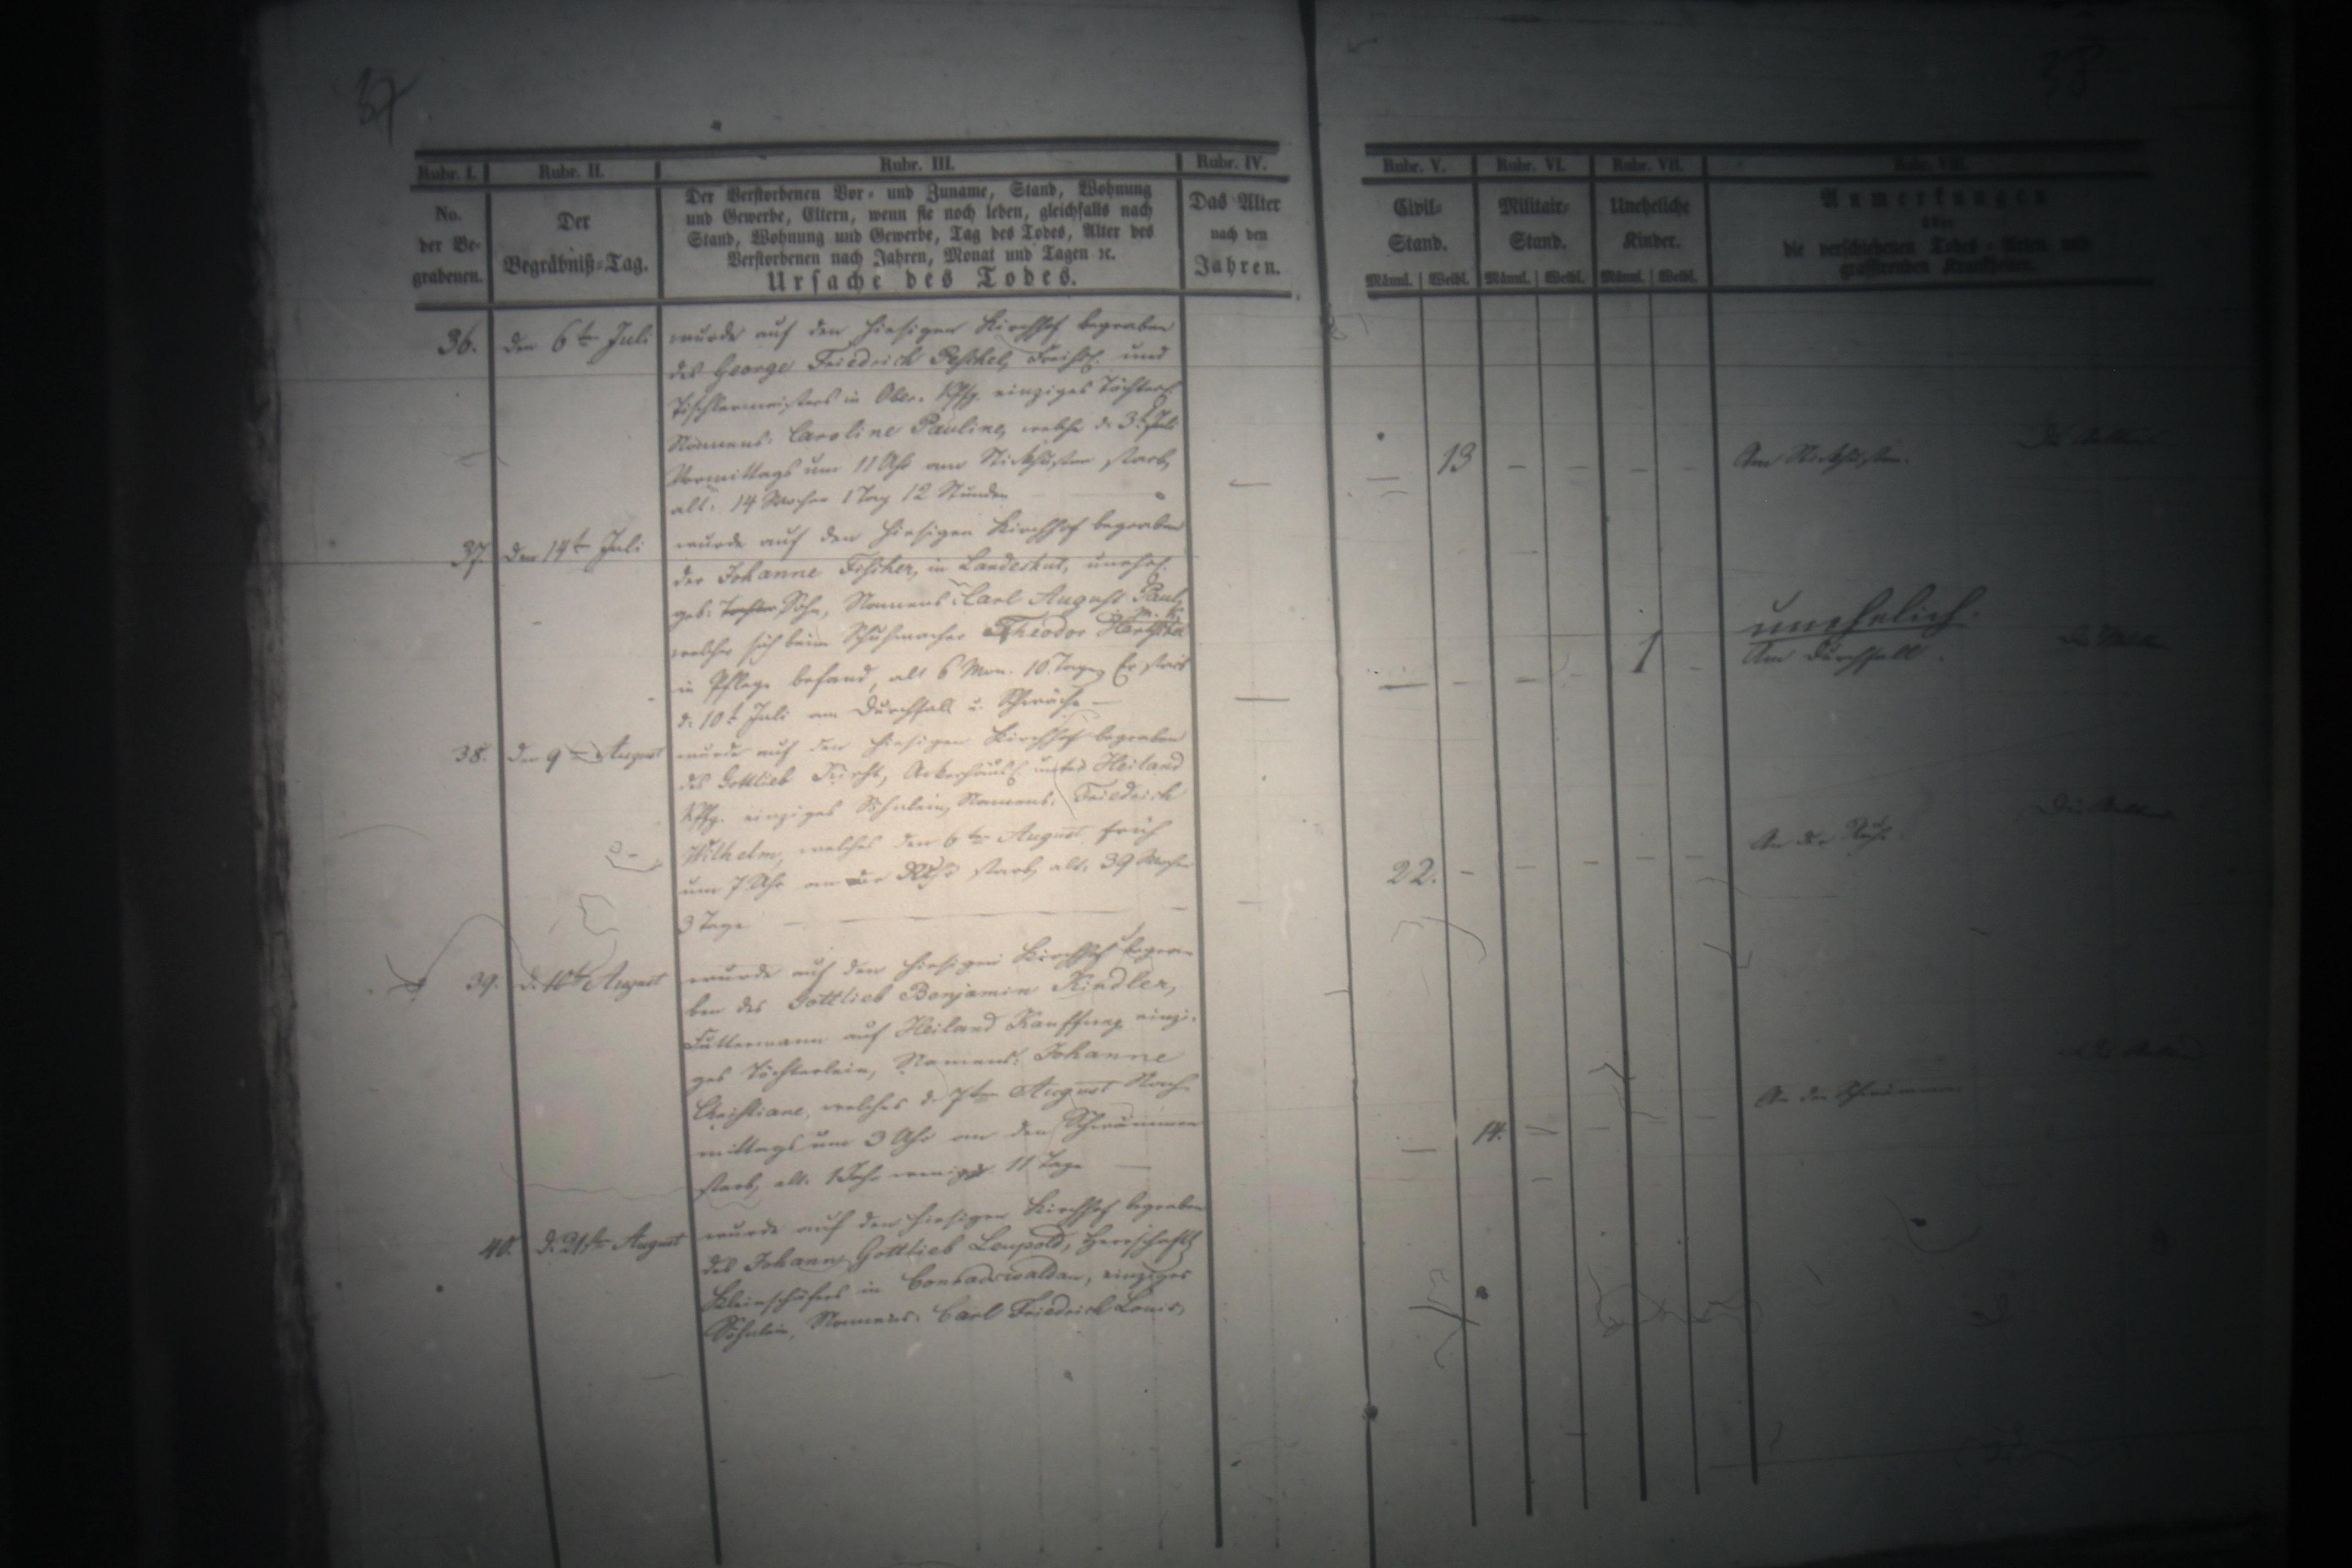 37
Rubr. I.
Rubr. II.
Rubr. III.
Rubr. IV.
Rubr. V.
Rubr. VI.
Rubr. VII.
Rubr. VIII.
No.
der Be-
grabenen.
Der
Begräbniß-Tag.
Der Verstorbenen Vor- und Zuname, Stand, Wohnung
und Gewerbe, Eltern, wenn sie noch leben, gleichfalls nach
Stand, Wohnung und Gewerbe, Tag des Todes, Alter des
Verstorbenen nach Jahren, Monat und Tagen ꝛc.
Ursache des Todes.
Das Alter
nach den
Jahren.
Civil-
Stand.
Männl. Weibl.
Militair-
Stand.
Männl. Weibl.
Uneheliche
Kinder.
Männl. Weibl.
Anmerkungen
über
die verschiedenen Todes-Arten und
grassirenden Krankheiten.
36. den 6ten Juli
wurde auf den hiesigen Kirchhof begraben
des George Friedrich Peschel, Freihsl. und
Tischlermeisters in Ober-Kffg. einziges Töchterl.
Namens: Caroline Pauline, welche d. 3t. Juli
Vormittags um 11 Uhr am Stickhusten starb,
alt: 14 Wochen 1 Tag 12 Stunden
— — 13 — — — — Am Stickhusten.
37. Den 14ten Juli
wurde auf den hiesigen Kirchhof begraben
der Johanne Fischer, in Landeshut, unehel.
geb. Tochter Sohn, Namens Carl August Paul,
welcher sich beim Schuhmacher Theodor
in Pflege befand, alt 6 Mon. 10 Tage, Er starb
d. 10t Juli am Durchfall u. Schwäche —
— — — — — 1 — unehelich.
Am Durchfall
38. Den 9ten August
wurde auf den hiesigen Kirchhof begraben
des Gottlieb Ackerhäusl. unter Heiland
Kffg. einziges Söhnlein, Namens: Friedrich
Wilhelm, welches den 6ten August früh
um 7 Uhr an der Ruhr starb, alt. 39 Wochen
3 Tage —
22. — — — — — An der Ruhr.
39. d. 10ten August
wurde auf den hiesigen Kirchhof begra-
ben des Gottlieb Benjamin Kindler,
Futtermann auf Heiland Kauffung einzi-
ges Töchterlein, Namens: Johanne
Christiane, welches d. 7ten August Nach-
mittags um 3 Uhr an den Schwämmen
starb, alt. 1 Jahr weniger 11 Tage —
— 14. — — — — An den Schwämmen
40. d. 21sten August
wurde auf den hiesigen Kirchhof begraben
des Johann Gottlieb Leupold, Herrschaftl.
Kleinschäfers in Conradswaldau, einziges
Söhnlein, Namens: Carl Friedrich Louis,